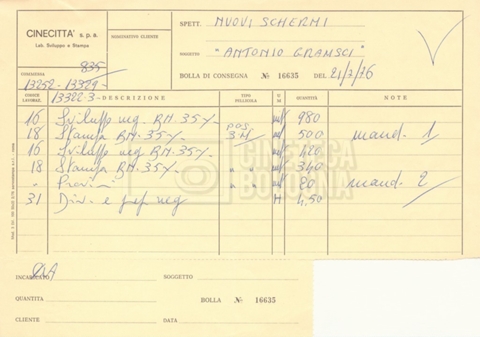 CINECITTÀ s.p.a.
Lab. Sviluppo e Stampa
NOMINATIVO CLIENTE
SPETT. NUOVI SCHERMI
SOGGETTO "ANTONIO GRAMSCI"
COMMESSA 835
13252 - 13329 -
BOLLA DI CONSEGNA № 16635 DEL 21/7/76
CODICE LAVORAZ. 13322 3 - DESCRIZIONE TIPO PELLICOLA U M QUANTITÀ NOTE
16 Sviluppo neg BN. 35 mt 980
18 Stampa BN. 35 pos 3M mt 500 mand. 1
16 Sviluppo neg BN. 35 mt 420
18 Stampa BN. 35 " " mt 340
" Provini " " mt 20 mand. 2
31 Div. e prep neg H 4,50
CINETECA
BOLOGNA
INCARICATO
SOGGETTO
QUANTITÀ
BOLLA № 16635
CLIENTE
DATA